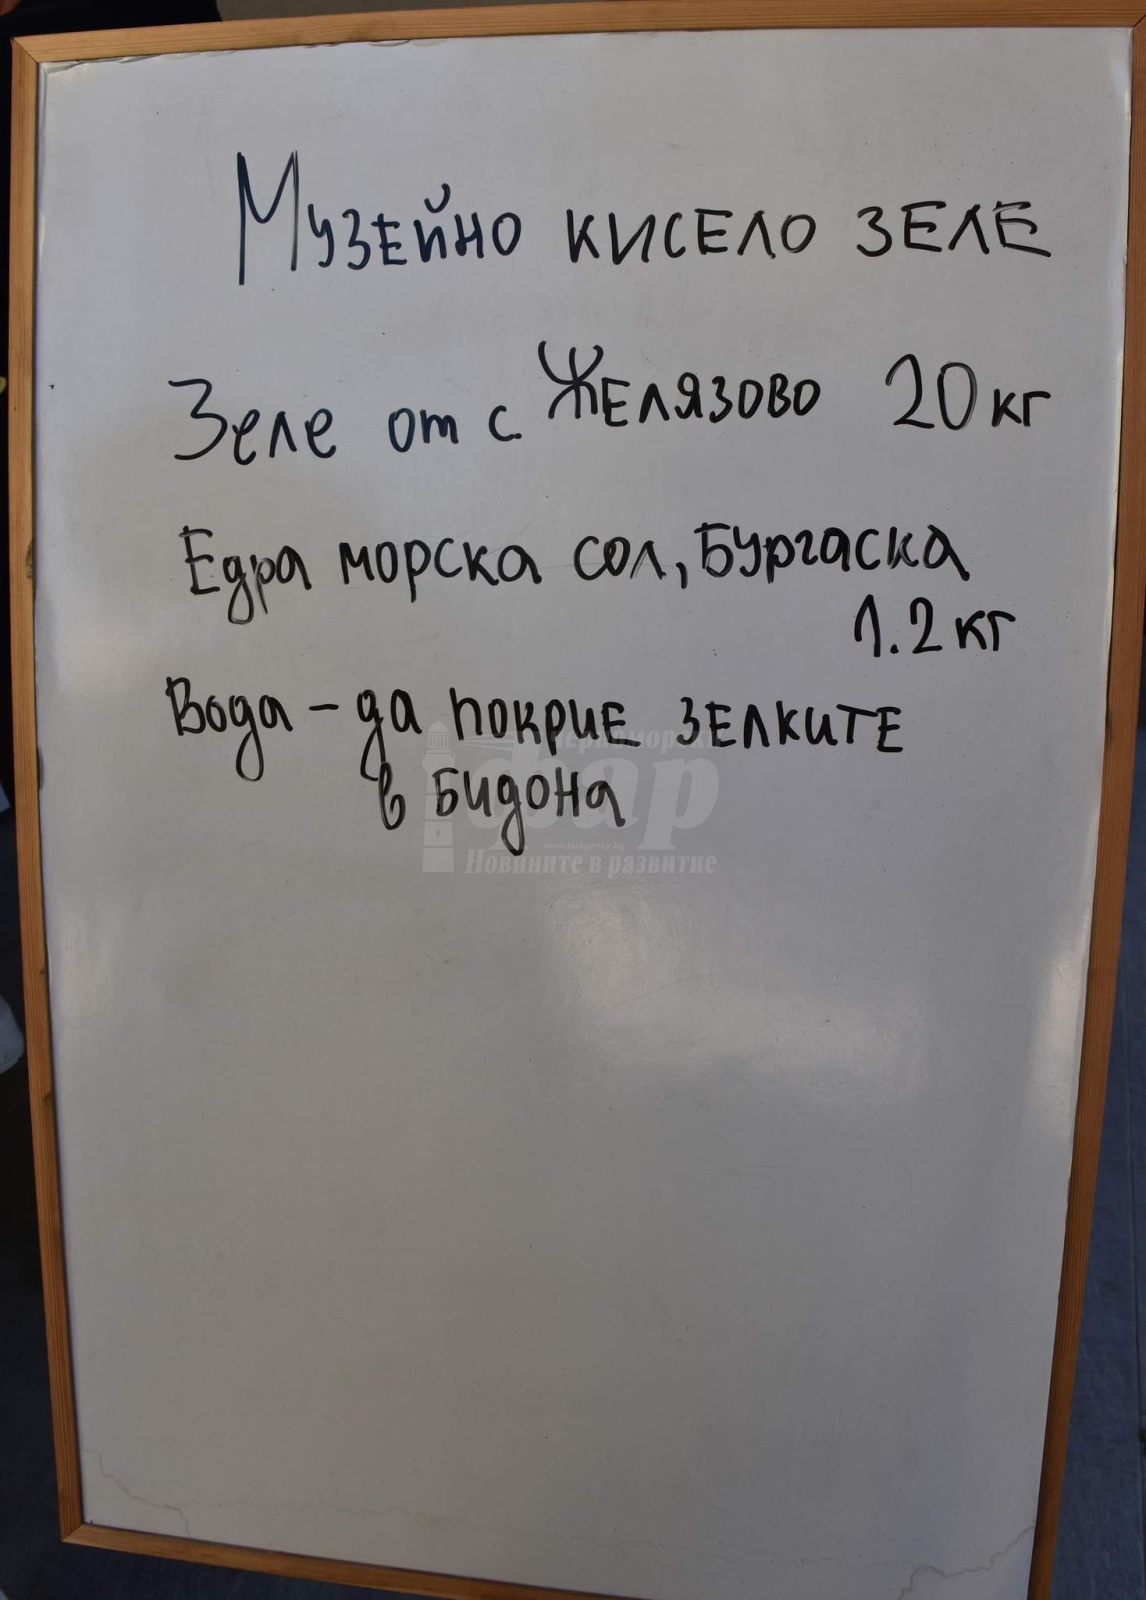 Музейно кисело зеле
Зеле от с. Желязово 20 кг
Едра морска сол, Бургаска
1.2 кг
Вода – да покрие зелките
в бидона
Черноморски
фар
www.faragency.bg
Новините в развитие